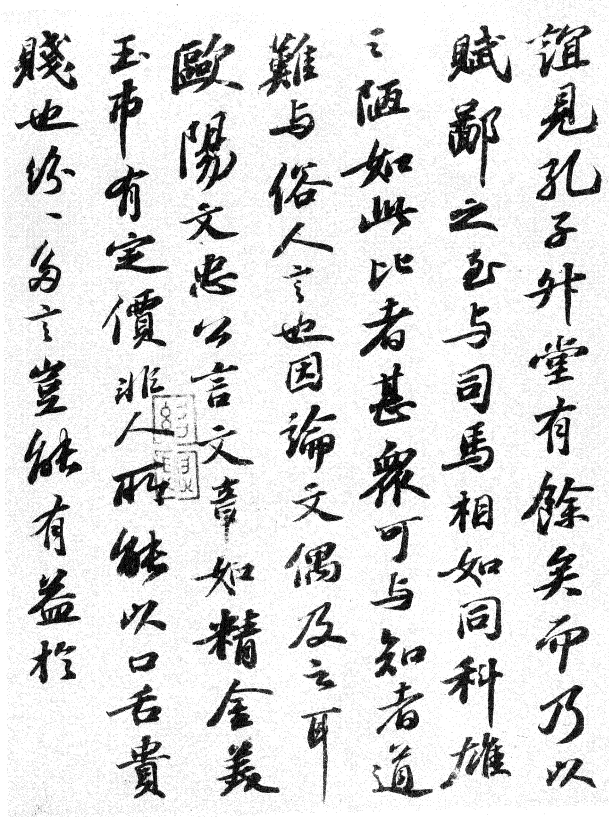 誼見孔子升堂有餘矣而乃以
賦鄙之至与司馬相如同科雄
之陋如此比者甚衆可与知者道
難与俗人言也因論文偶及之耳
歐陽文忠公言文章如精金美
玉市有定價非人所能以口舌貴
賤也紛〻多言豈能有益於